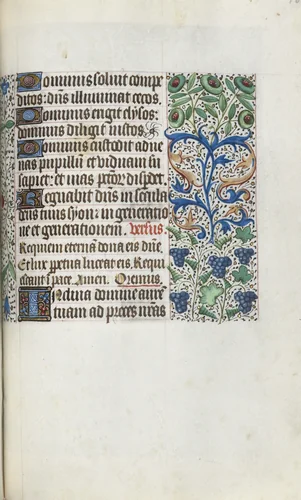 Dominus soluit compe
ditos: dn̄s illuminat cecos.
Dominus erigit elisos:
dominus diligit iustos
Dominus custodit adue
nas pupillum et viduam su
scipiet: et vias p̄ctor̄ disp̄det.
Regnabit dn̄s in secula
deus tuus syon: in generatio
ne et generationem. versus.
Requiem eternā dona eis dn̄e.
Et lux p̄petua luceat eis. Requi
escant ī pace. Amen. Oremus.
Inclina domine aurē
tuam ad preces nr̄as